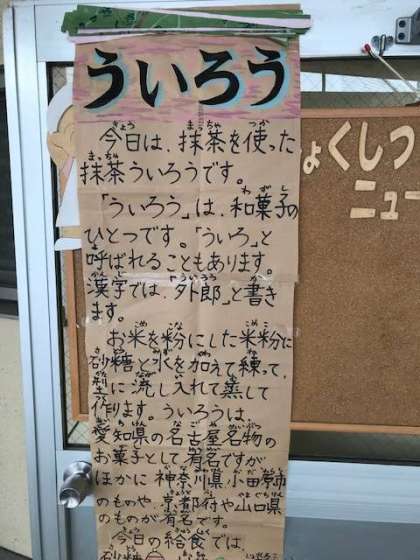 ういろう
今日は、抹茶を使った
抹茶ういろうです。
「ういろう」は、和菓子の
ひとつです。「ういろ」と
呼ばれることもあります。
漢字では、「外郎」と書き
ます。
お米を粉にした米粉に
砂糖と水を加えて練って、
型に流し入れて蒸して
作ります。ういろうは、
愛知県の名古屋名物の
お菓子として有名ですが
ほかに神奈川県小田原市
のものや、京都府や山口県
のものが有名です。
今日の給食では
砂糖
ょくしつ
ニュー